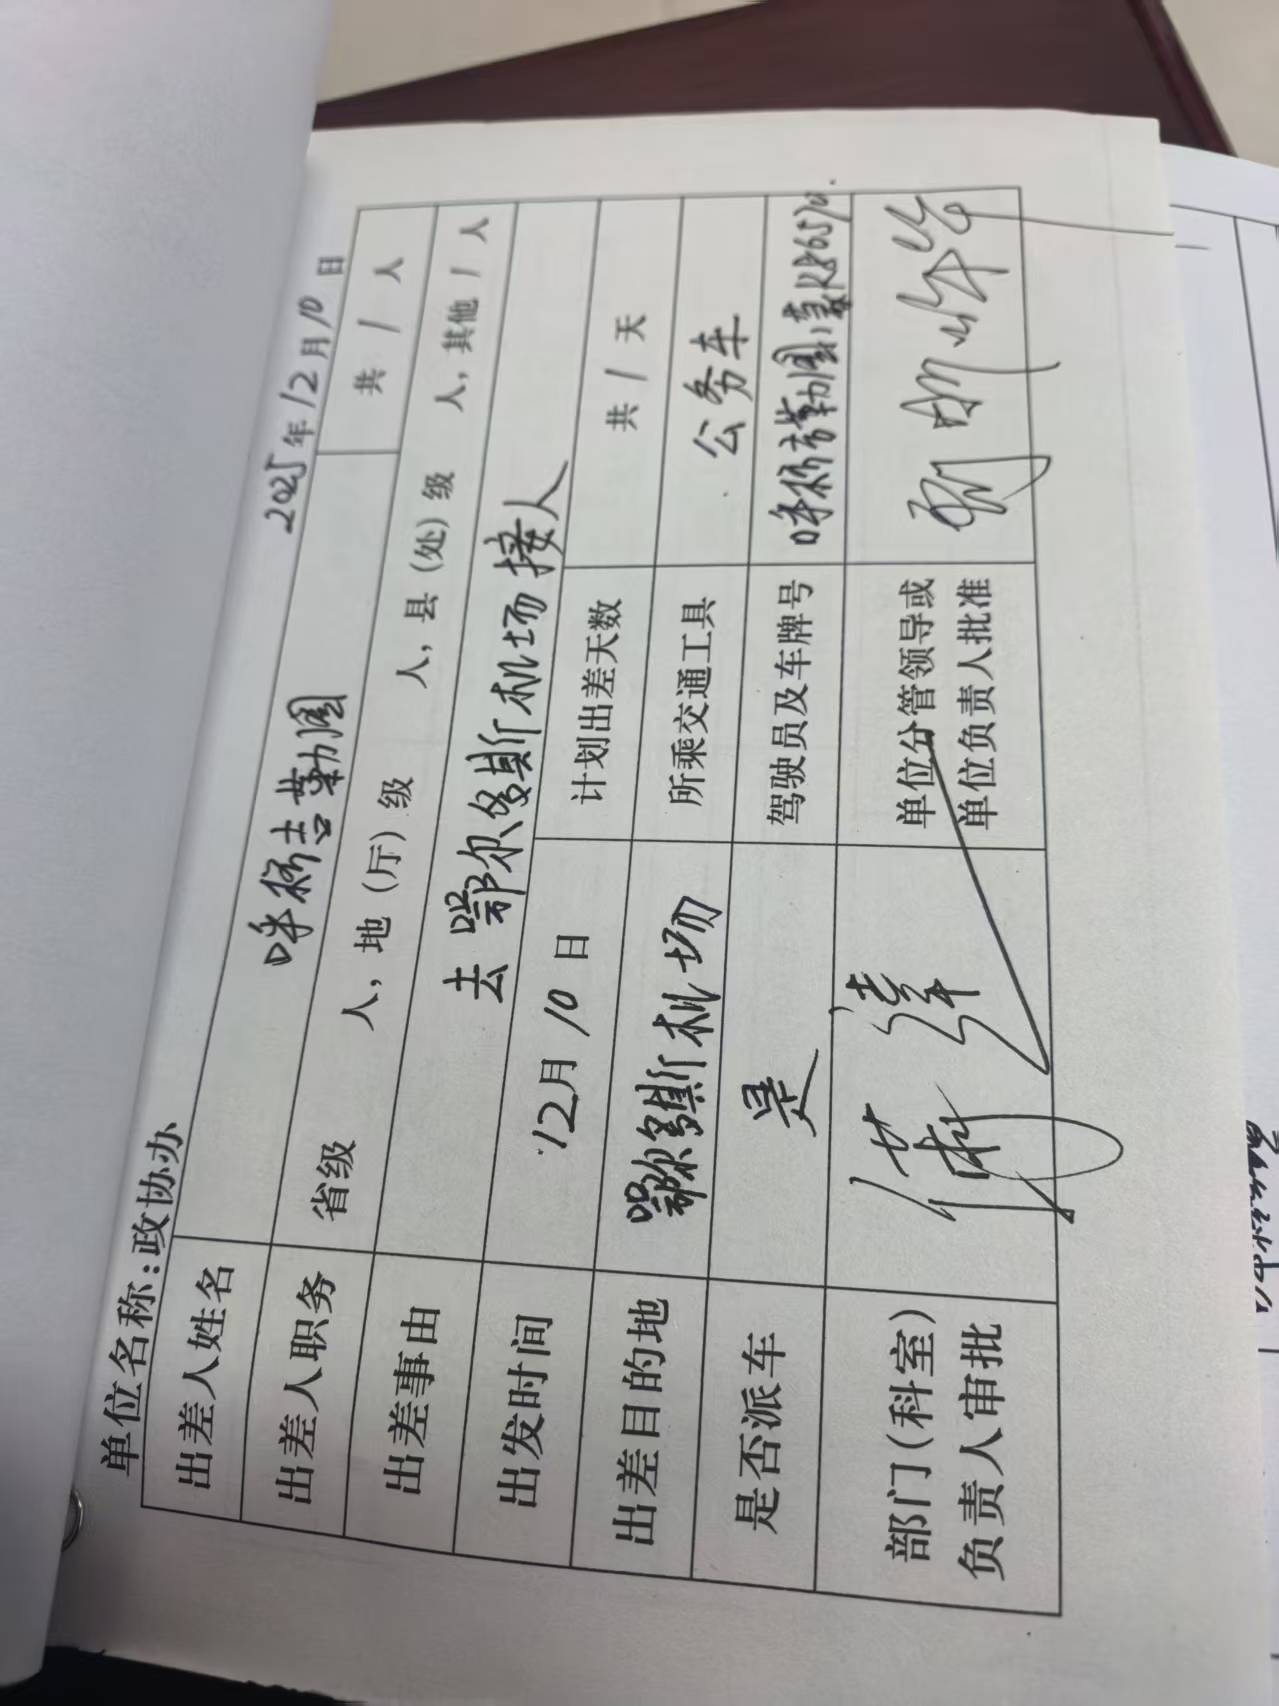 单位名称:政协办
2025年12月10日
出差人姓名 呼格吉勒图 共 1 人
出差人职务 省级 人,地(厅)级 人,县(处)级 人,其他 1 人
出差事由 去鄂尔多斯机场接人
出发时间 12月10日 计划出差天数 共 1 天
出差目的地 鄂尔多斯机场 所乘交通工具 公务车
是否派车 是 驾驶员及车牌号 呼格吉勒图
部门(科室) 单位分管领导或
负责人审批 单位负责人批准